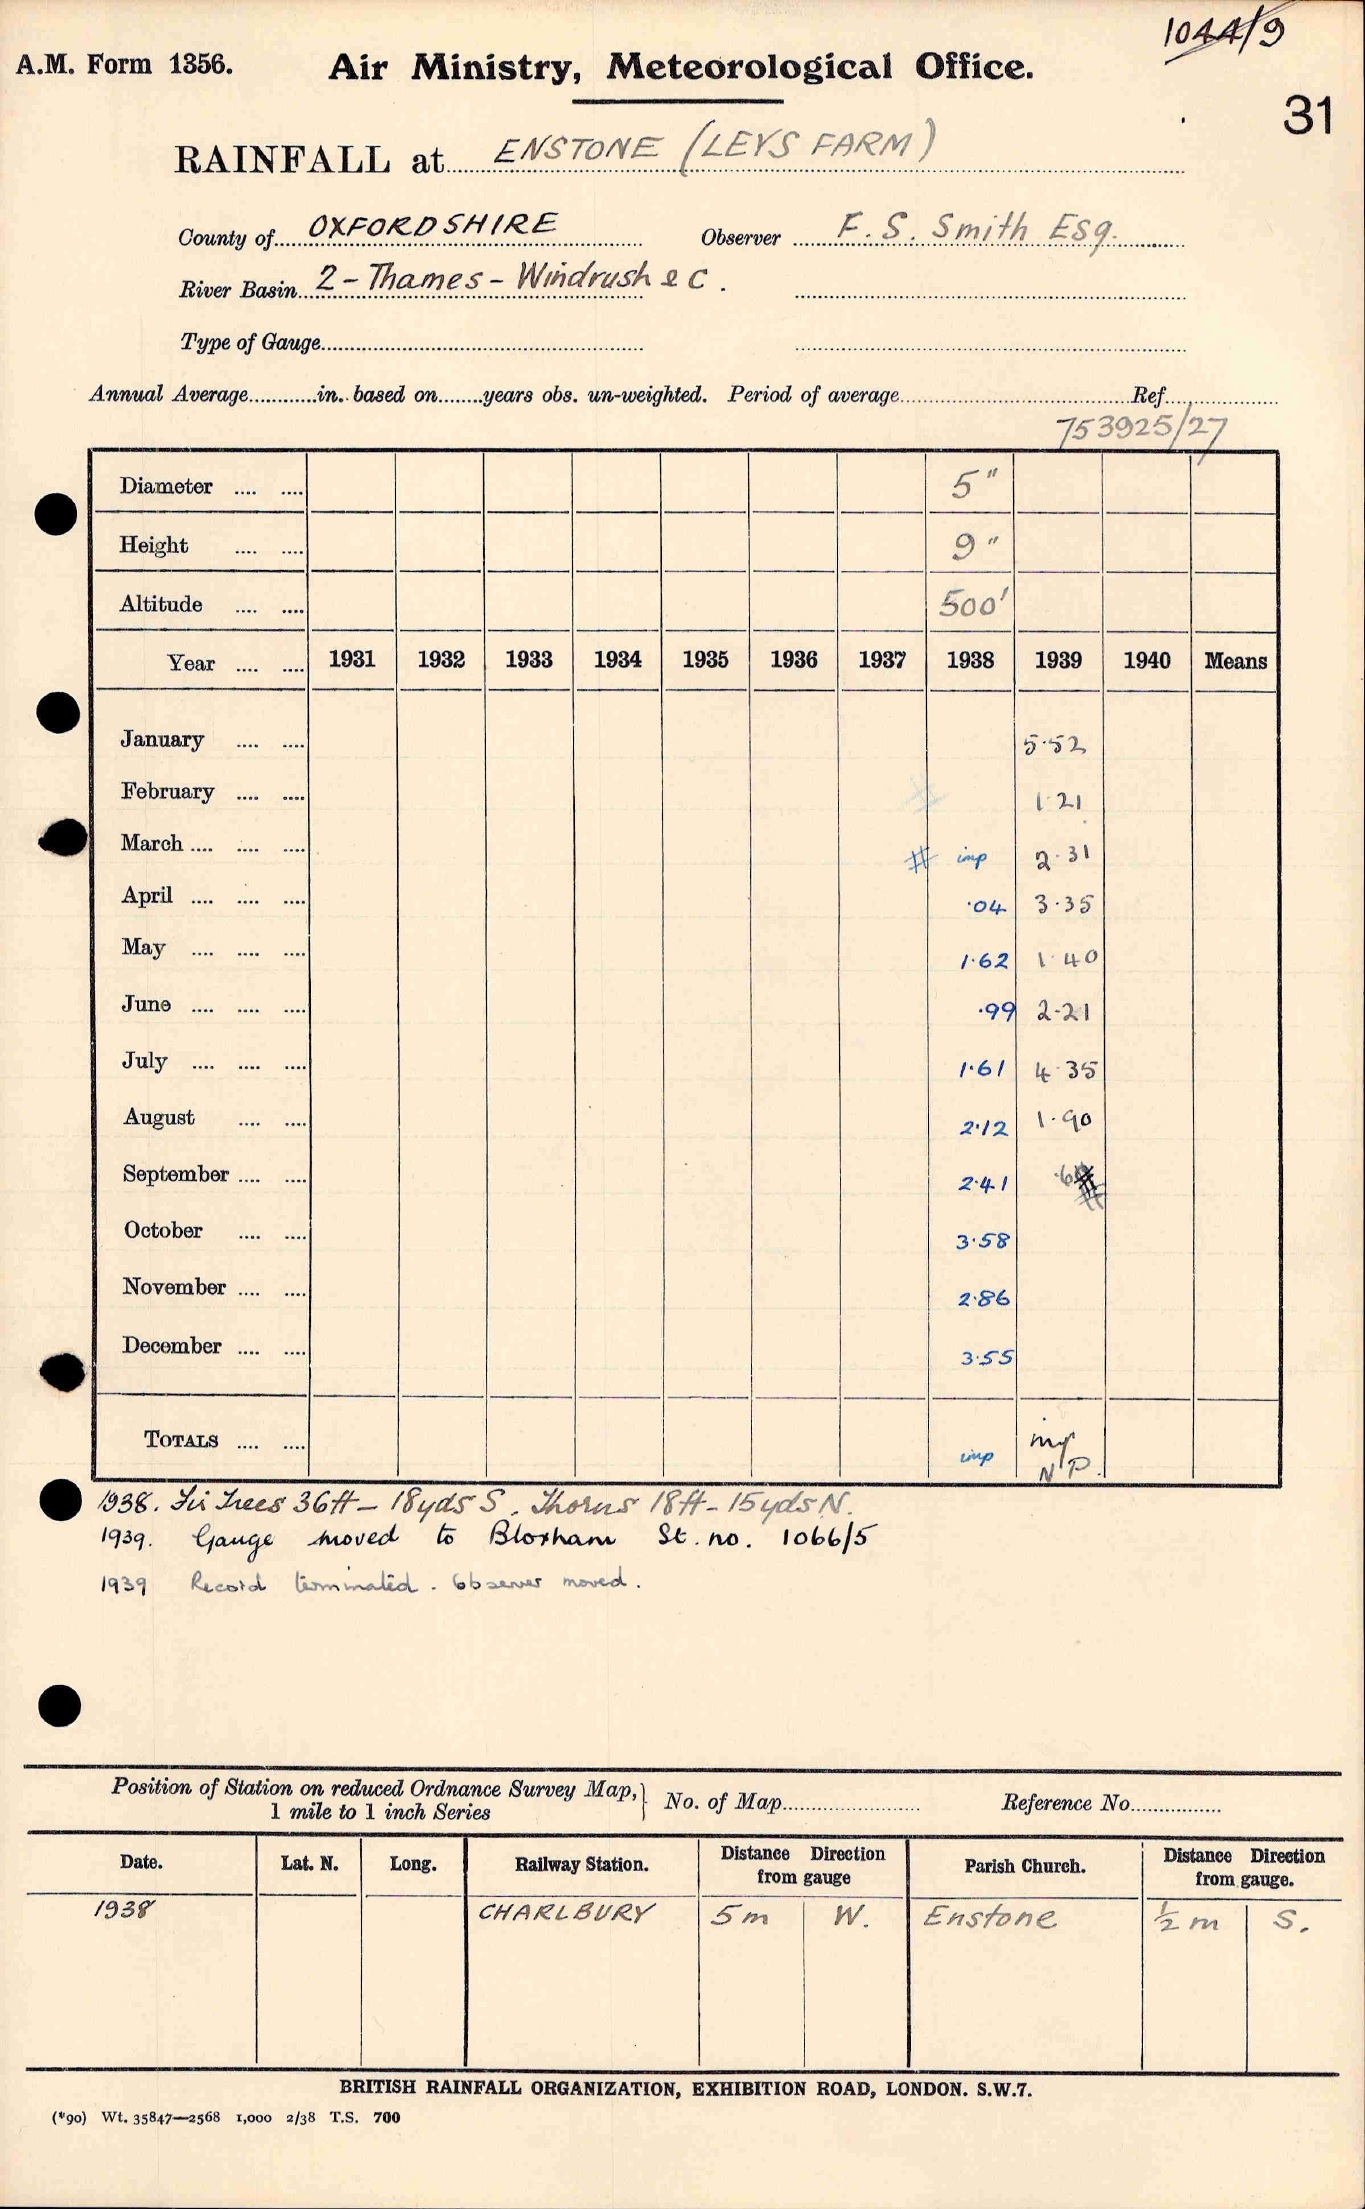 1044/9
A.M. Form 1356. Air Ministry, Meteorological Office.
31
RAINFALL at ENSTONE (LEYS FARM)
County of OXFORDSHIRE Observer F. S. Smith Esq.
River Basin 2 - Thames - Windrush & C.
Type of Gauge
Annual Average in. based on years obs. un-weighted. Period of average Ref
753925/27
Diameter 5"
Height 9"
Altitude 500'
Year 1931 1932 1933 1934 1935 1936 1937 1938 1939 1940 Means
January 5.52
February # 1.21
March # imp 2.31
April .04 3.35
May 1.62 1.40
June .99 2.21
July 1.61 4.35
August 2.12 1.90
September 2.41 #
October 3.58
November 2.86
December 3.55
TOTALS imp imp
N P.
1938. Fir Trees 36ft - 18yds S. Thorns 18ft - 15yds N.
1939. Gauge moved to Bloxham St. no. 1066/5
1939 Record terminated. Observer moved.
Position of Station on reduced Ordnance Survey Map, 1 mile to 1 inch Series } No. of Map Reference No.
Date. Lat. N. Long. Railway Station. Distance Direction from gauge Parish Church. Distance Direction from gauge.
1938 CHARLBURY 5m W. Enstone ½ m S.
BRITISH RAINFALL ORGANIZATION, EXHIBITION ROAD, LONDON. S.W.7.
(*90) Wt. 35847—2568 1,000 2/38 T.S. 700